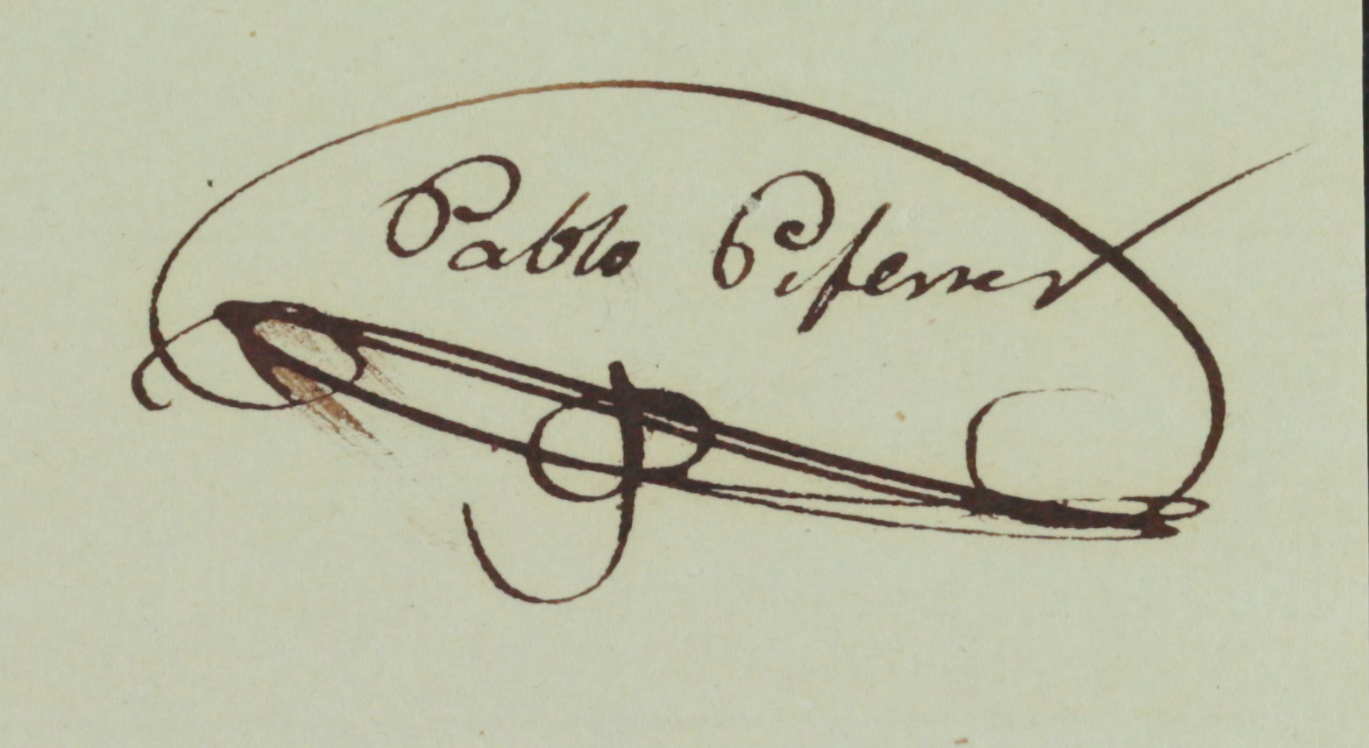 Pablo Piferrer